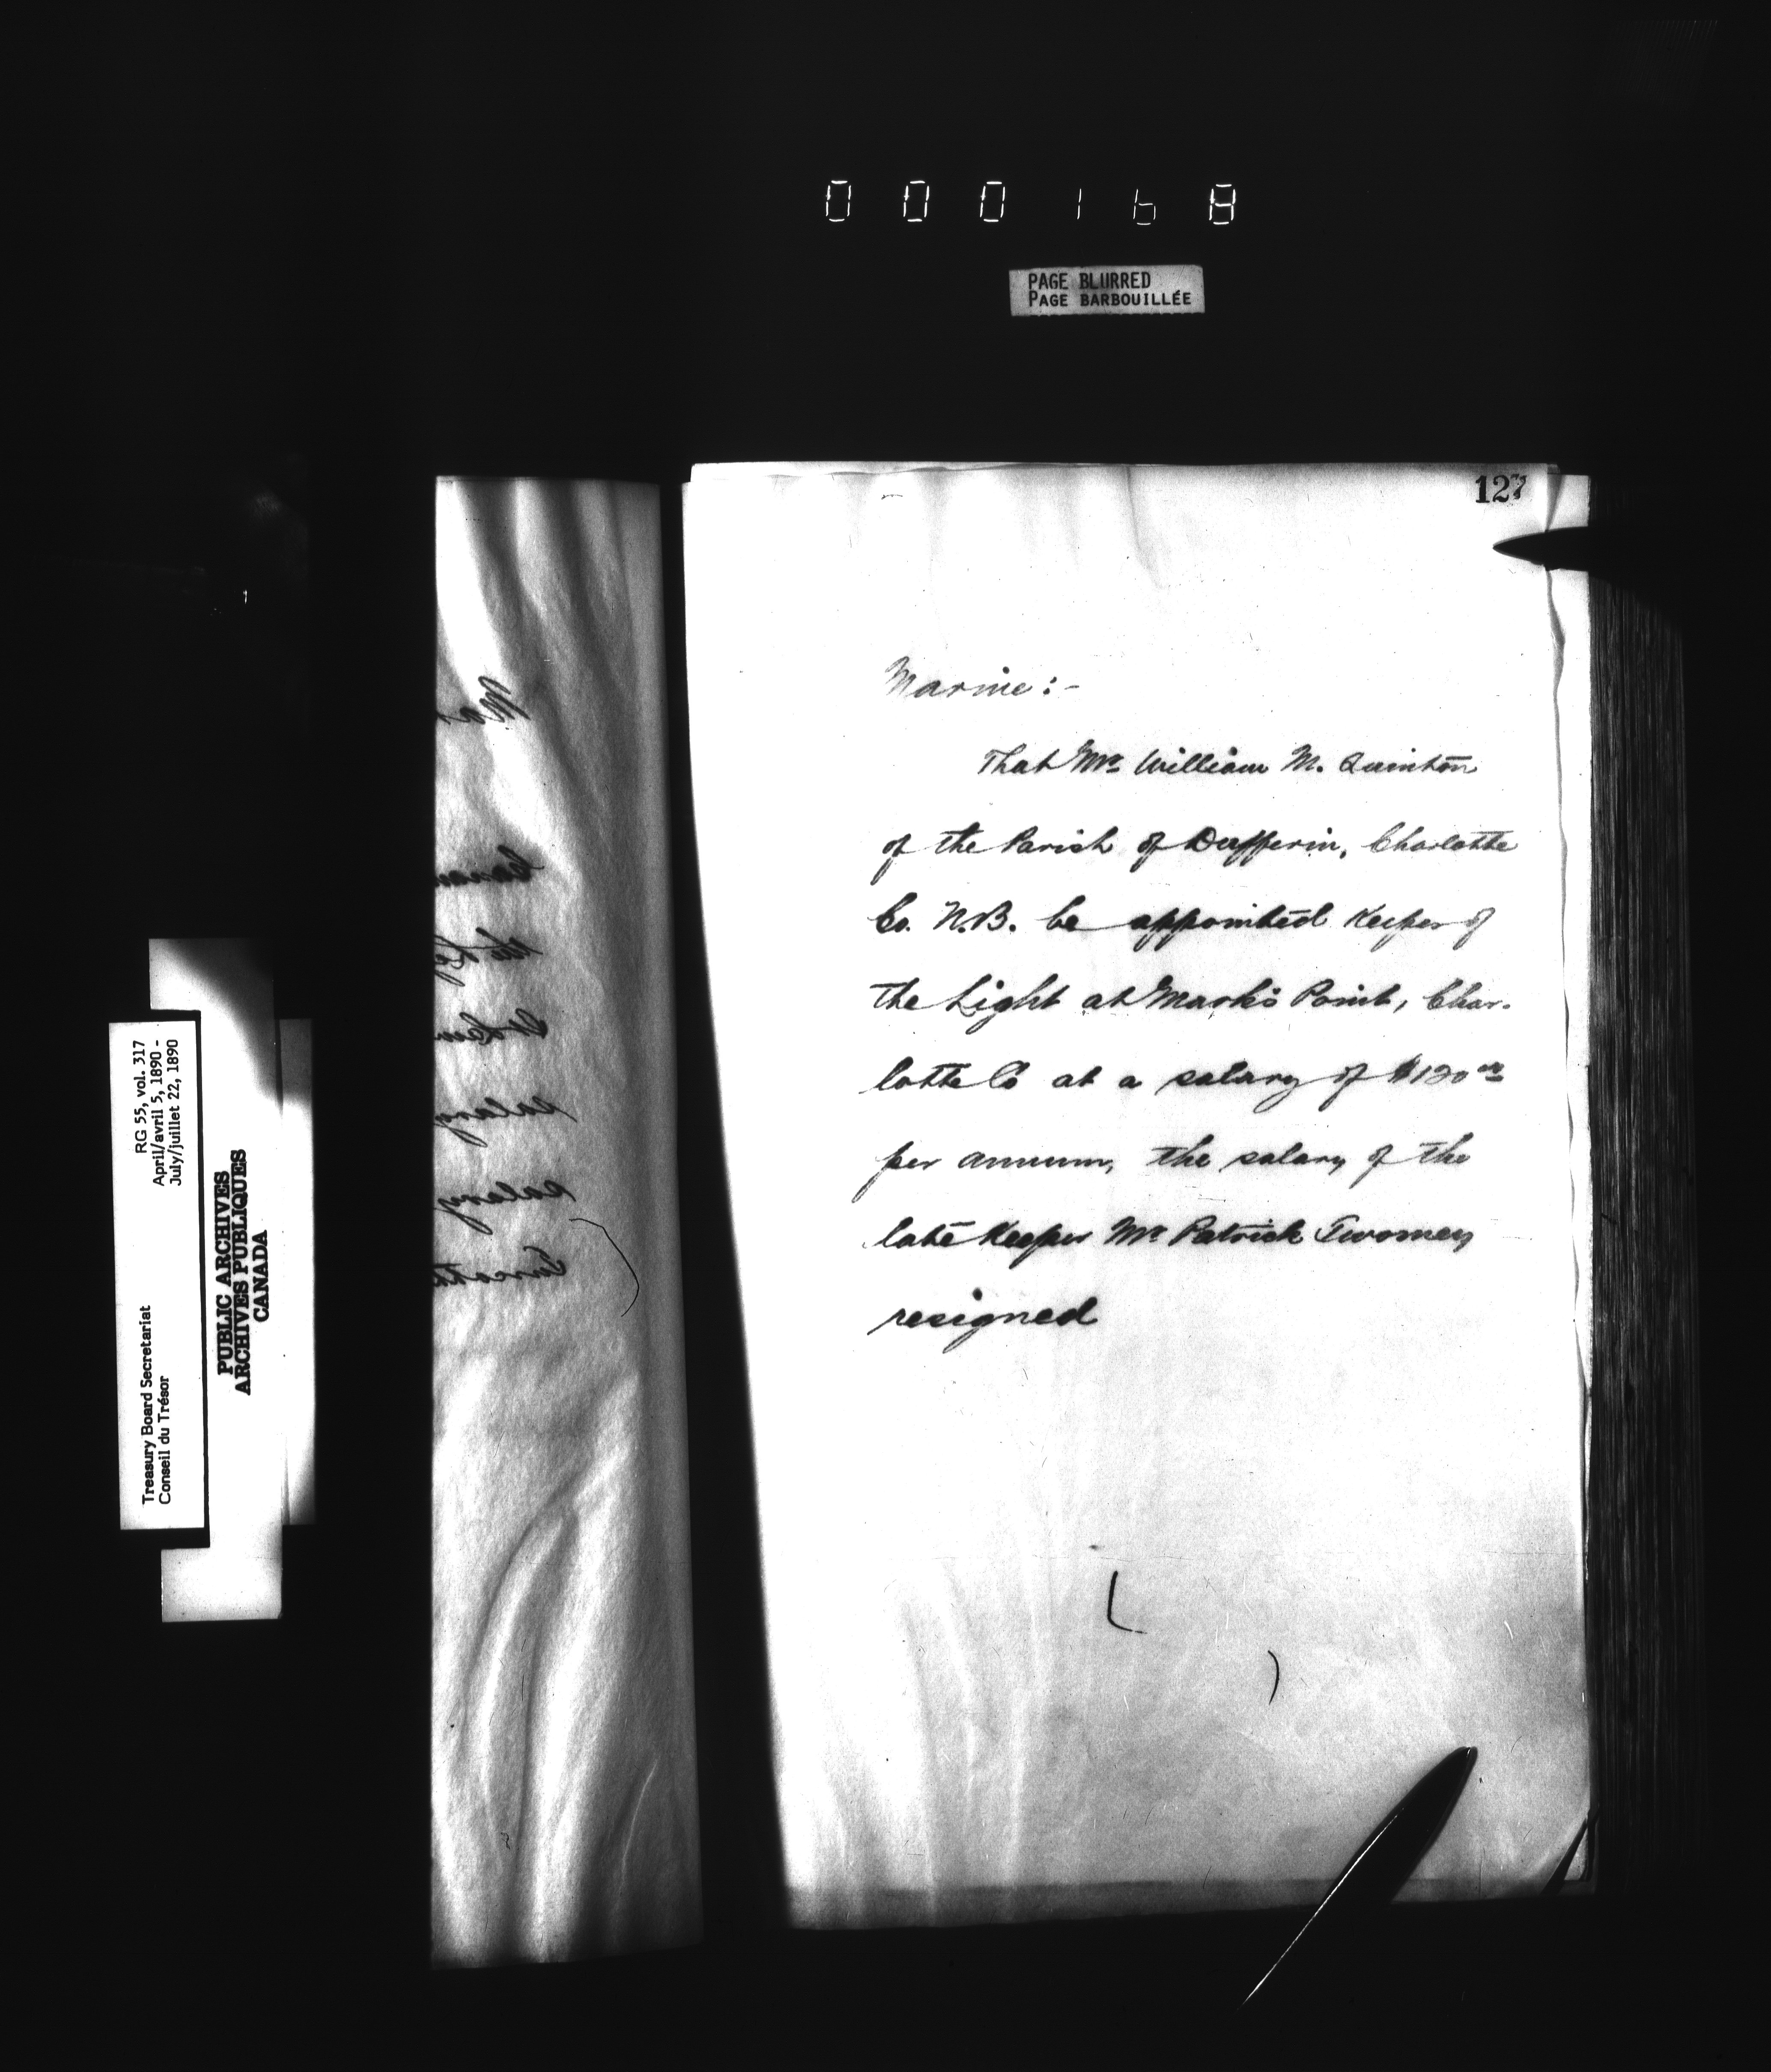 000168
PAGE BLURRED
PAGE BARBOUILLÉE
127
Marine:-
That Mr William M. Quinton
of the Parish of Dufferin, Charlotte
Co. N.B. be appointed Keeper of
the Light at Mark's Point, Char-
lotte Co at a salary of $120 00
per annum, the salary of the
late Keeper Mr Patrick Twomey
resigned
RG 55, vol. 317
April/avril 5, 1890 -
July/juillet 22, 1890
Treasury Board Secretariat
Conseil du Trésor
PUBLIC ARCHIVES
ARCHIVES PUBLIQUES
CANADA
salary
salary